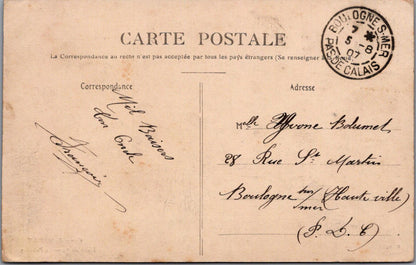 CARTE POSTALE
La Correspondance au recto n'est pas acceptée par tous les pays étrangers (Se renseigner à la Poste)
BOULOGNE-S-MER
7 *
5 - 8
07
PAS DE CALAIS
Correspondance
Adresse
Mil Baisers
Ton Oncle
François
Melle Yvonne Bolumet
28 Rue St Martin
Boulogne sur mer (Haute ville)
(P. D. C)